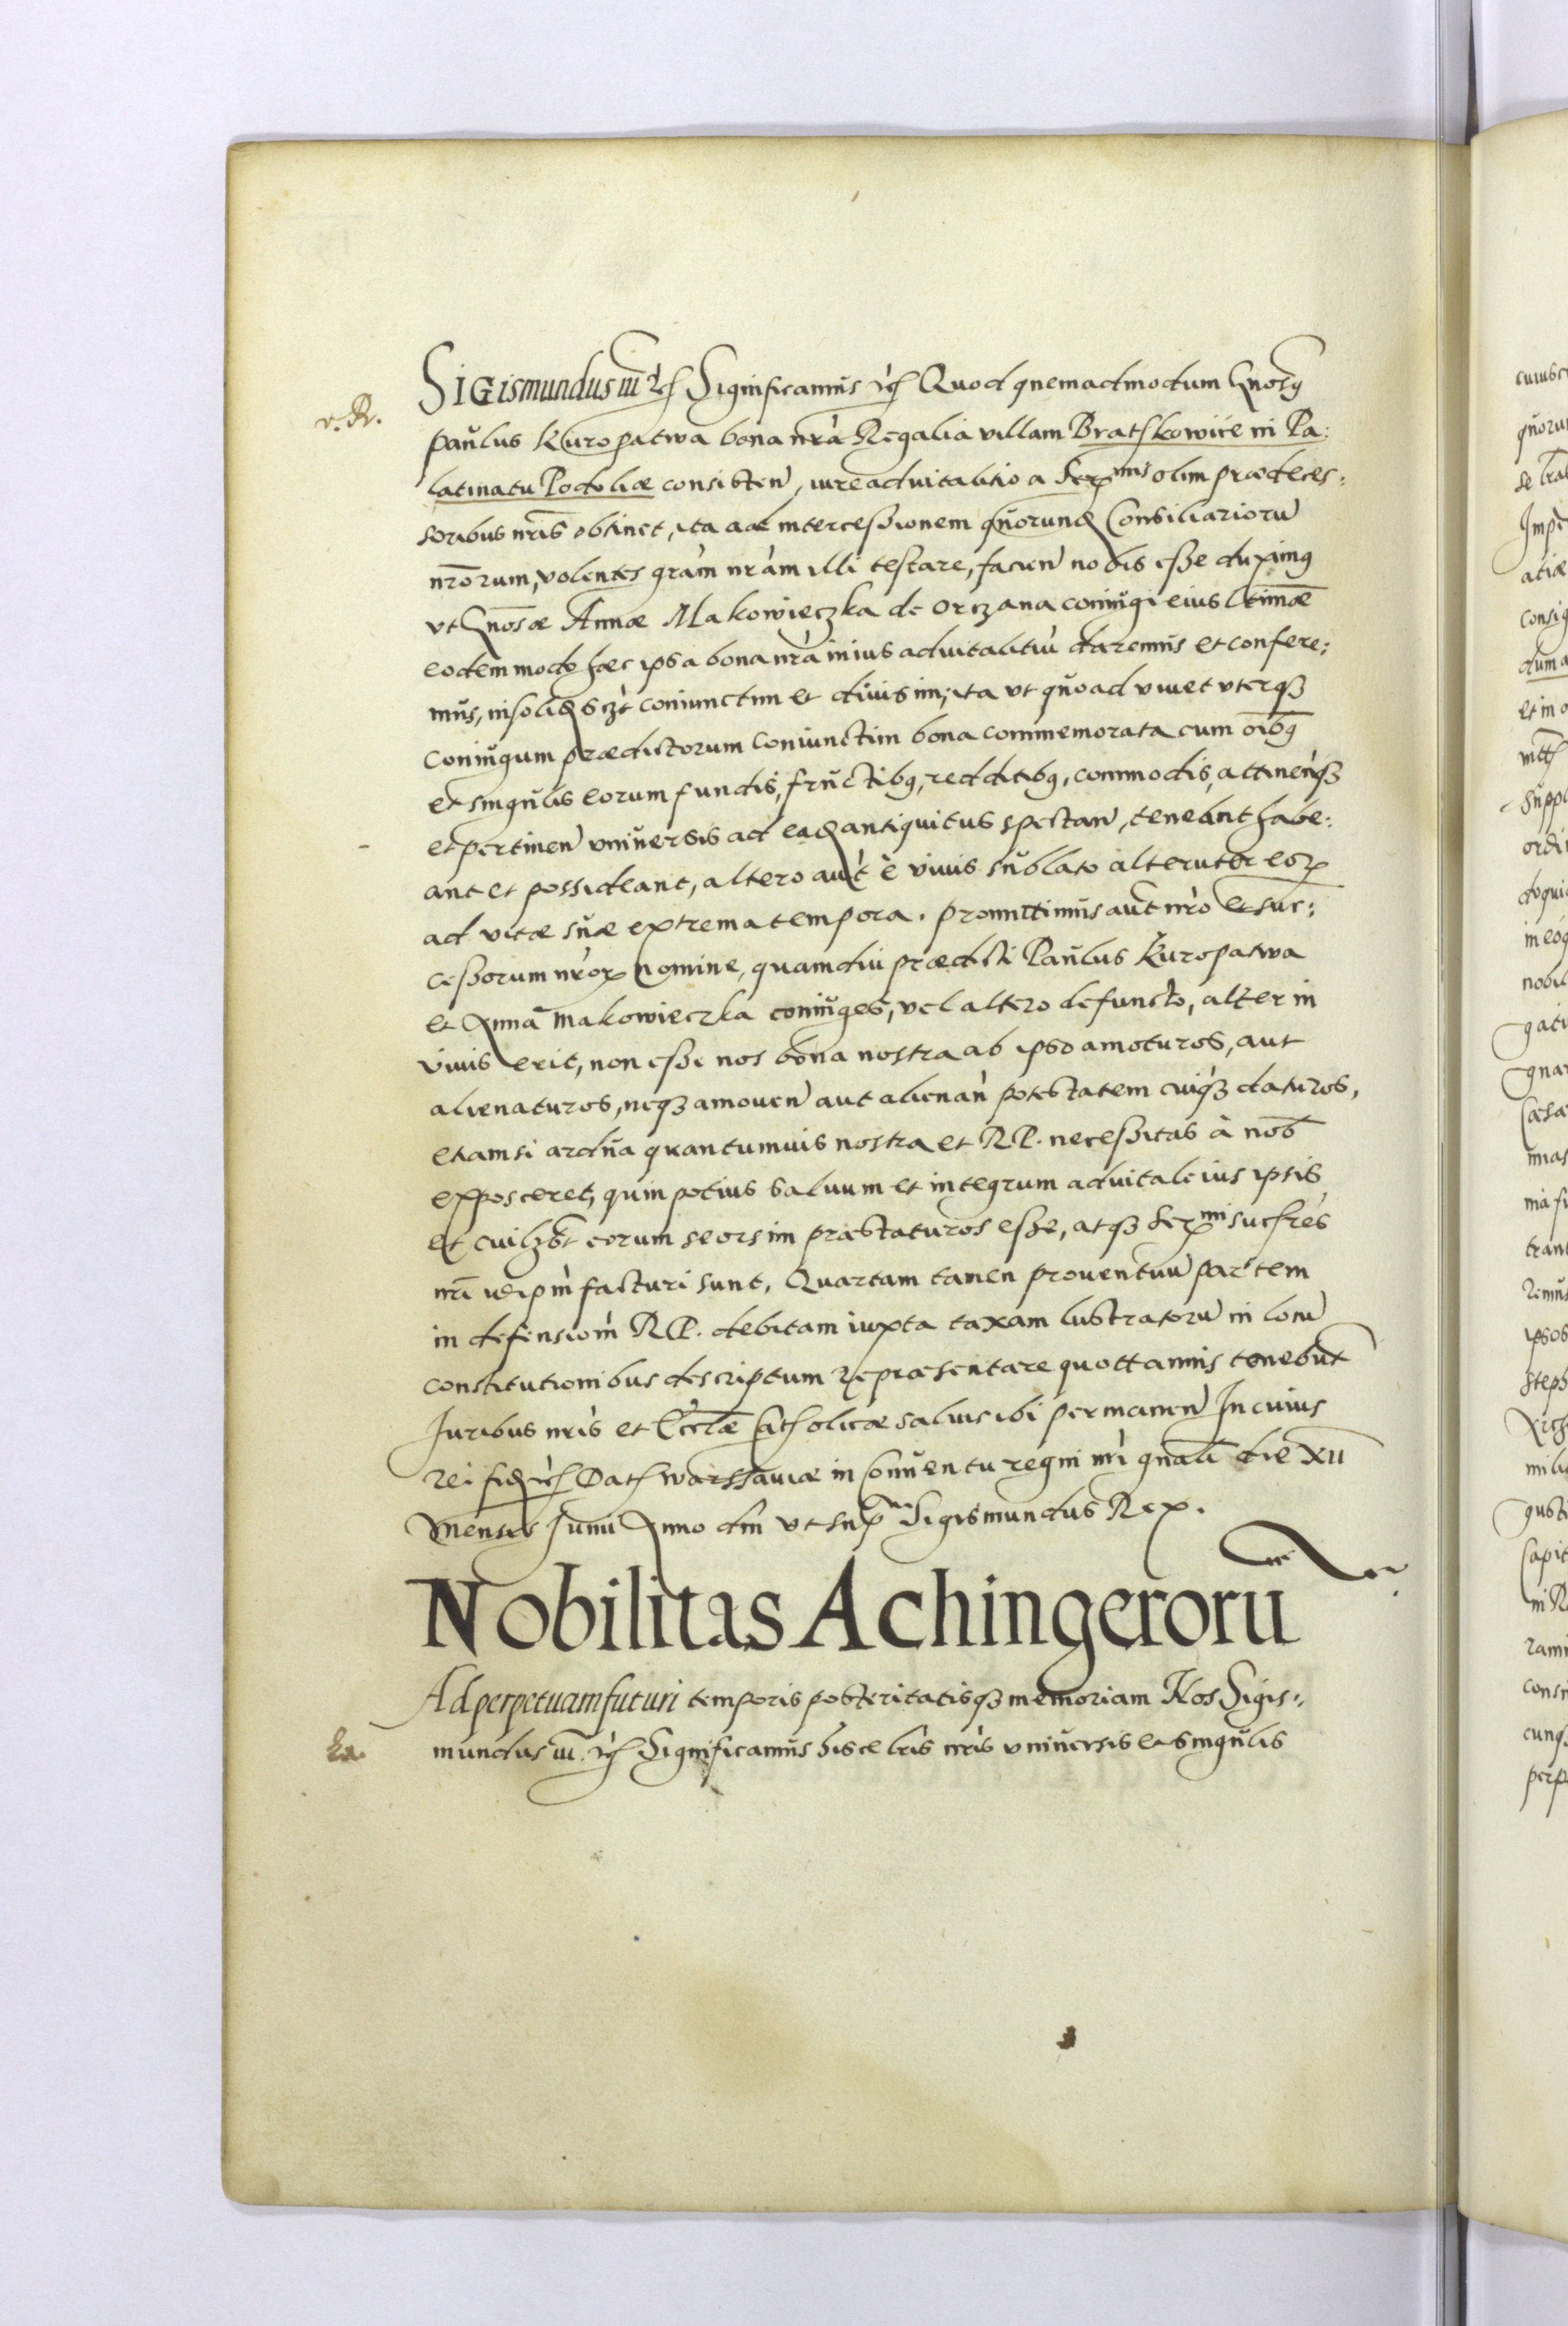 SIGismundus III etc Significamus etc Quod quemadmodum Gnosus
v. R.
Paulus Kuropatwa bona nrà Regalia villam Bratskowice in Pa:
latinatu Podoliæ consisten, iure aduitalitio a Serx mis olim prædeces:
soribus nris obtinet, ita ad intercessionem quorund Consiliarioru
nrorum, volentes gràm nràm illi testare, facien nobis esse duximus
vt Gnosæ Annæ Makowieczka de Orczana coniugi eius ltimæ
eodem modo hæc ipsa bona nrà in ius aduitalitiu daremus et confere:
mus, in solid szt coniunctim et diuisim; ita vt quoad viuet vterq3
coniugum prædictorum coniunctim bona commemorata cum oibus
et singulis eorum fundis, fructibus, redditibus, commodis, attinenq3
et pertinen vniuersis ad ead antiquitus spectan, teneant habe:
ant et possideant, altero aut è viuis sublato alteruter eorx
ad vitæ suæ extrema tempora. promittimus aut nro et suc:
cessorum nrorx nomine, quamdiu prædicti Paulus Kuropatwa
et Anna Makowieczka coniuges, vel altero defuncto, alter in
viuis erit, non esse nos bona nostra ab ipso amoturos, aut
alienaturos, neq3 amouen aut alienan potestatem cuiq3 daturos,
etiamsi ardua quantumuis nostra et R.P. necessitas à nob
exposceret, quin potius saluum et integrum aduitale ius ipsis
et cuilzbt eorum seorsim præstaturos esse, atq3 Serx mi sucsres
nri idipm facturi sunt, Quartam tamen prouentuu partem
in defensiom R.P. debitam iuxta taxam lustratoru in locu
constitutionibus descriptum repræsentare quottannis tenebut
Iuribus nris et Ecclæ Catholicæ saluis ibi permanen In cuius
rei fid etc Dat Warssauiæ in Conuentu regni nri gnali die XII
Mensis Iunii Anno dni vt supra Sigismundus Rex.
Nobilitas Achingerorū
Ad perpetuam futuri temporis posteritatisq3 memoriam Nos Sigis:
mundus III etc Significamus hisce lris nris vniuersis et singulis